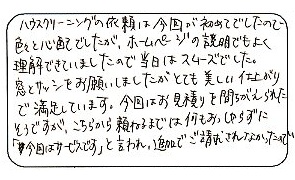 ハウスクリーニングの依頼は今回が初めてでしたので
色々と心配でしたが、ホームページの説明でもよく
理解できていましたので当日はスムーズでした。
窓とサッシをお願いしましたがとても美しい仕上がり
で満足しています。今回はお見積りを間ちがえられた
そうですが、こちらから頼ねるまでは何もおっしゃらずに
「今回はサービスです」と言われ、追加でご請求されなかったので